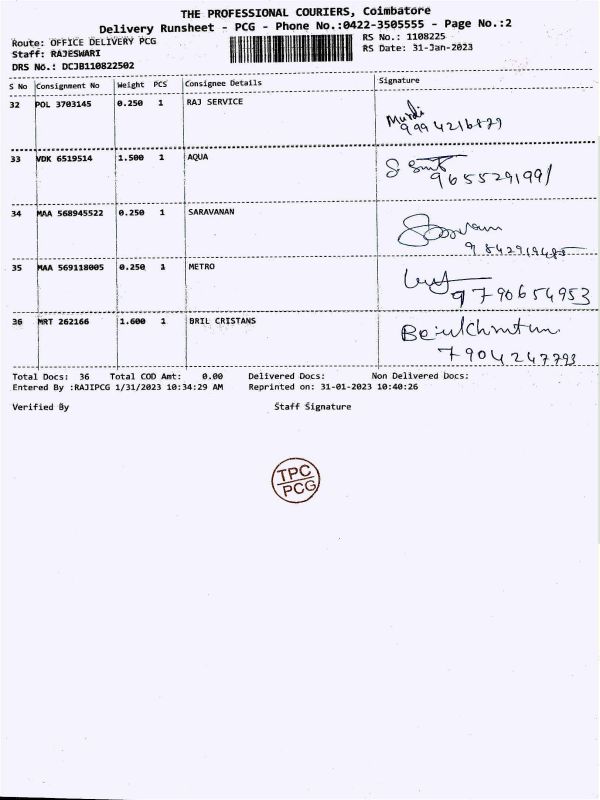 THE PROFESSIONAL COURIERS, Coimbatore
Delivery Runsheet - PCG - Phone No.:0422-3505555 - Page No.:2
Route: OFFICE DELIVERY PCG
RS No.: 1108225
Staff: RAJESWARI
RS Date: 31-Jan-2023
DRS No.: DCJB110822502
S No Consignment No Weight PCS Consignee Details Signature
32 POL 3703145 0.250 1 RAJ SERVICE
9994216829
33 VDK 6519514 1.500 1 AQUA
9655291991
34 MAA 568945522 0.250 1 SARAVANAN
35 MAA 569118005 0.250 1 METRO
9790654953
36 MRT 262166 1.600 1 BRIL CRISTANS
7904247793
Total Docs: 36 Total COD Amt: 0.00 Delivered Docs: Non Delivered Docs:
Entered By :RAJIPCG 1/31/2023 10:34:29 AM Reprinted on: 31-01-2023 10:40:26
Verified By Staff Signature
TPC
PCG